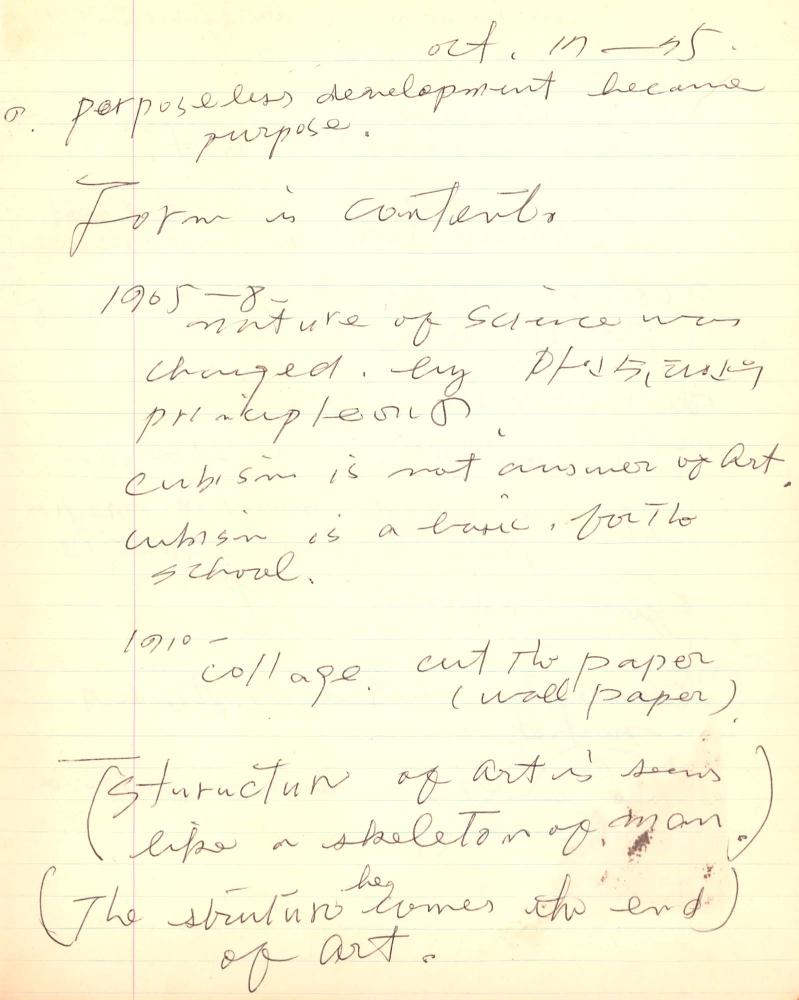 oct.
o. perposeless development became
purpose.
Form is content.
1905 — 8 -
nature of Science was
changed. by
cubism is not answer of Art.
cubism is a basic. for the
school.
1910 -
collage. cut the paper
(wall paper).
(Sturucture of art is seems
like a skeleton of man.)
(The struture becomes the end)
of art.